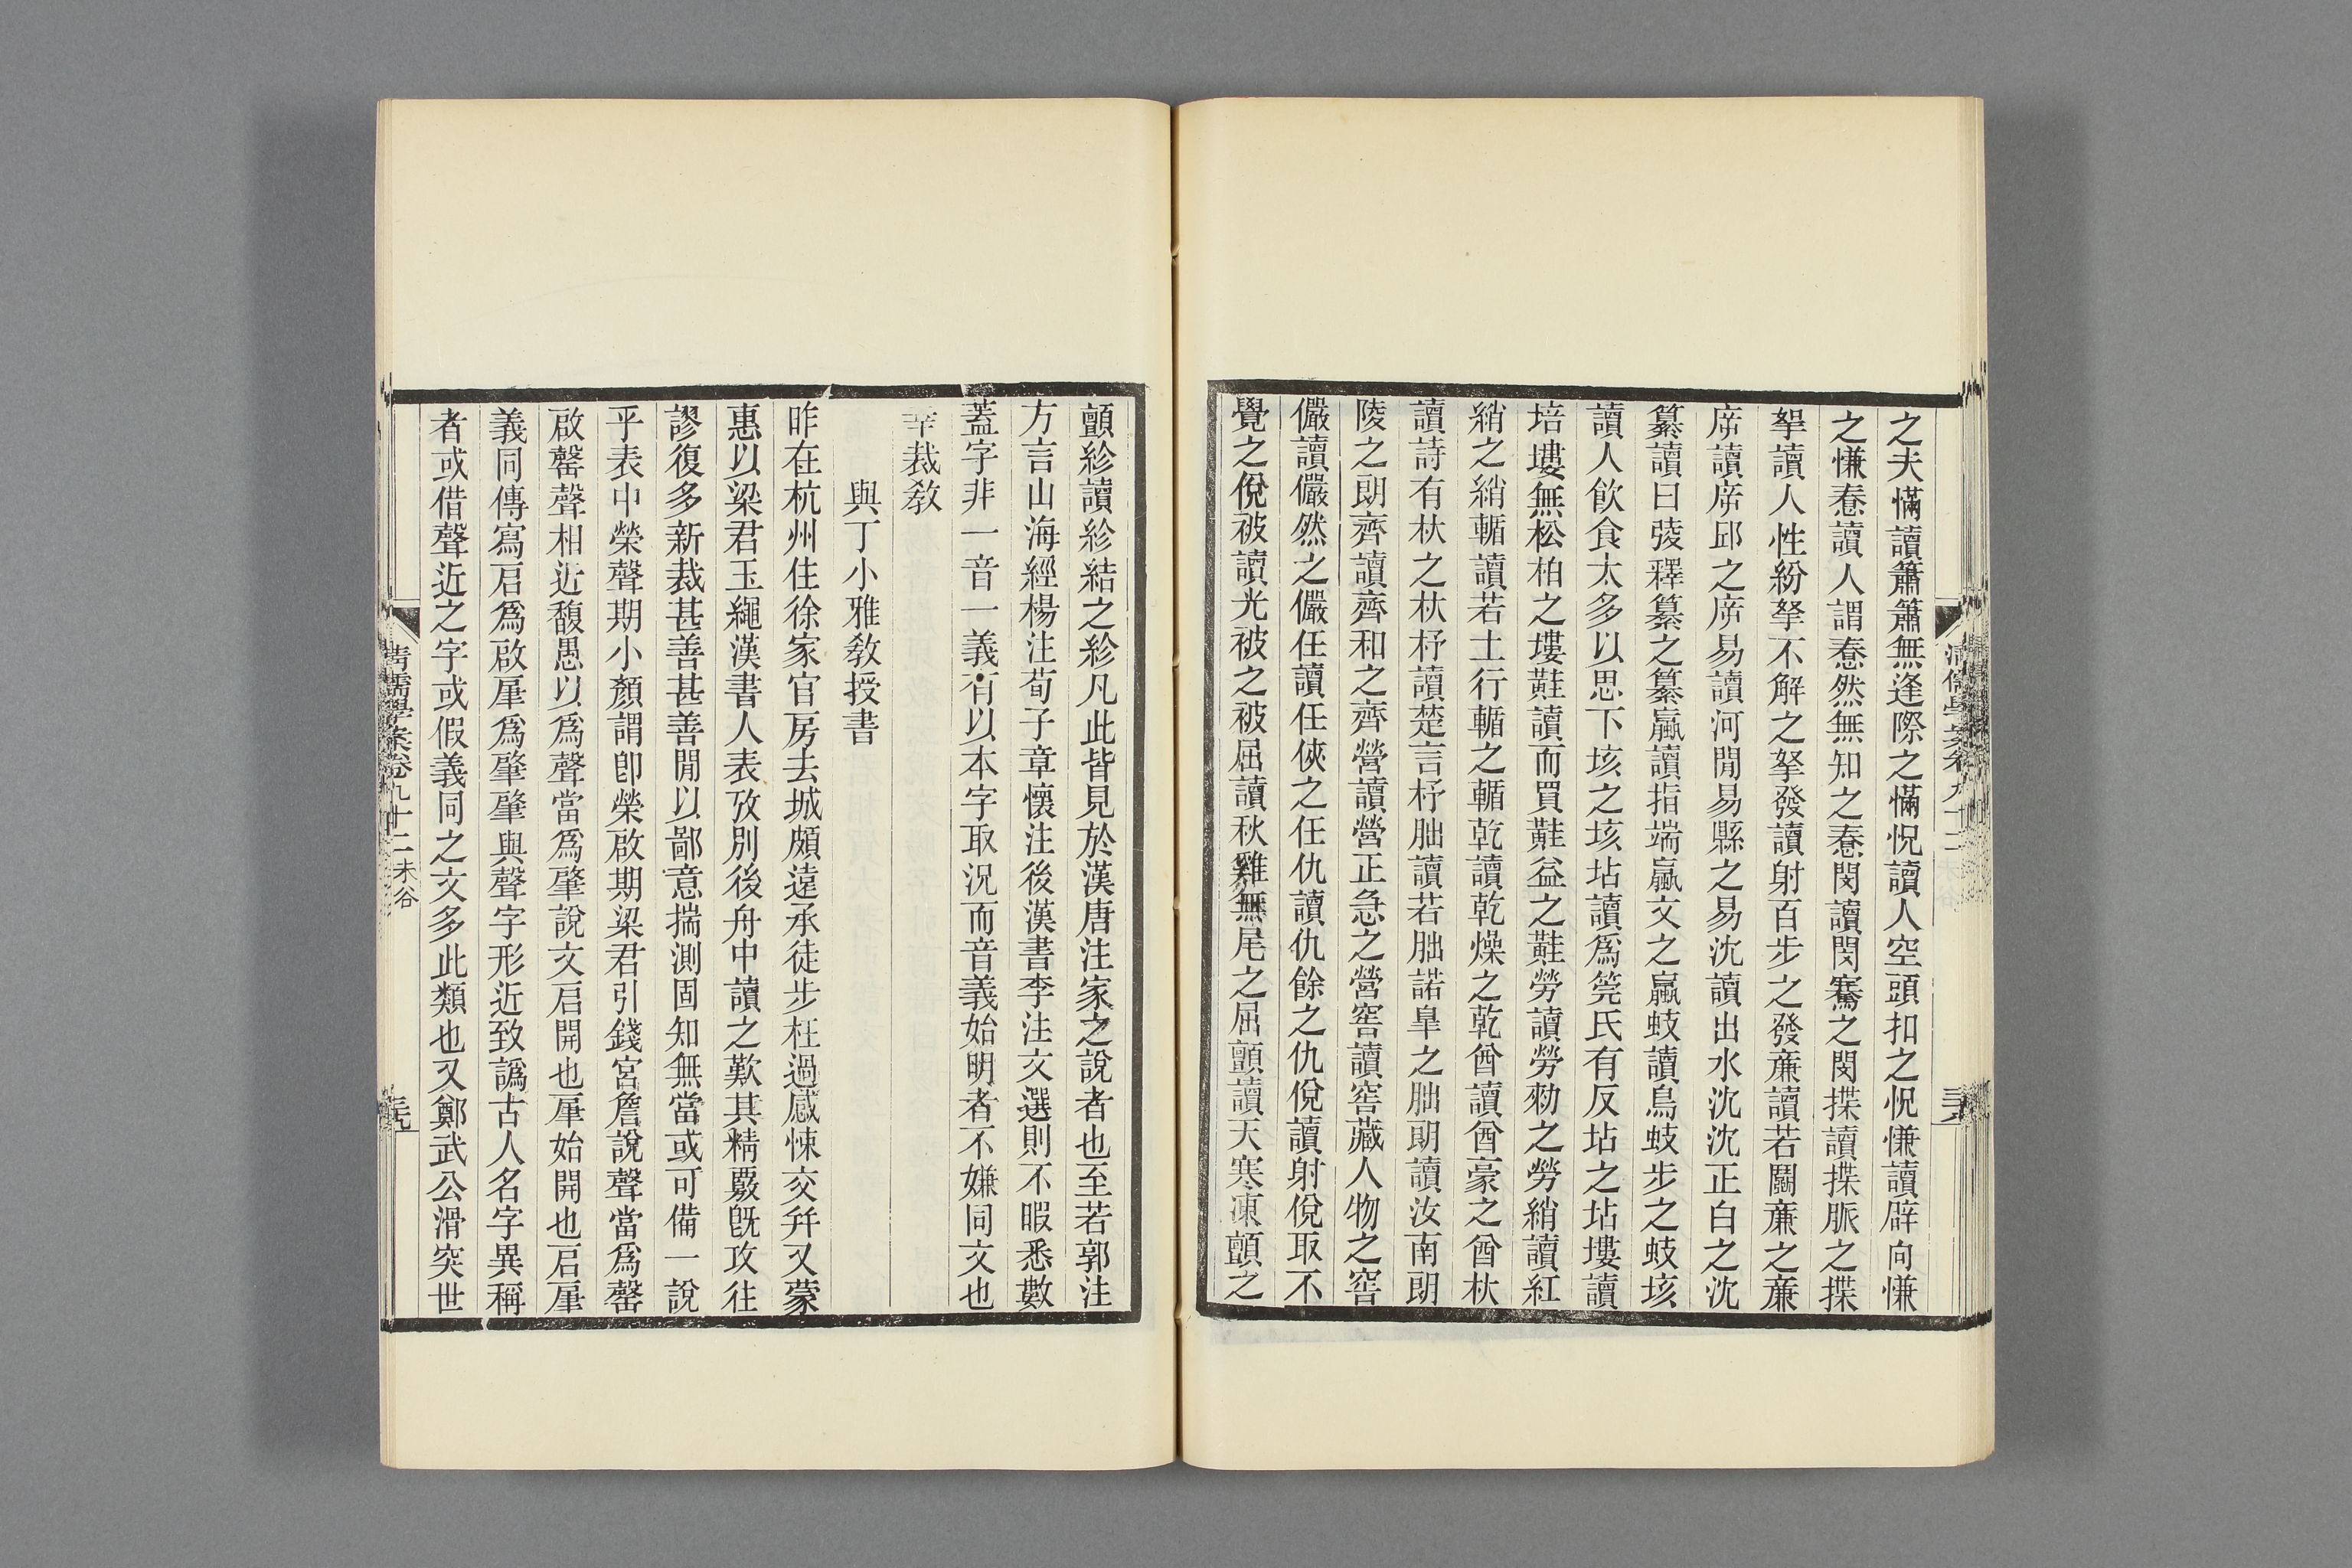 之夫慲讀簫簫無逢際之慲怳讀人空頭扣之怳慊讀辟向慊
之慊惷讀人謂惷然無知之惷閔讀閔騫之閔揲讀揲脈之揲
拏讀人性紛拏不解之拏發讀射百步之發亷讀若鬭亷之亷
㡿讀㡿邱之㡿易讀河閒易縣之易沈讀出水沈沈正白之沈
纂讀曰䔖釋纂之纂蠃讀指端蠃文之蠃蚑讀鳥蚑步之蚑垓
讀人飲食太多以思下垓之垓坫讀爲筦氏有反坫之坫塿讀
培塿無松柏之塿䵷讀而買䵷益之䵷勞讀勞勑之勞綃讀紅
綃之綃輴讀若土行輴之輴乾讀乾燥之乾酋讀酋豪之酋杕
讀詩有杕之杕杼讀楚言杼胐讀若胐諾皐之胐朗讀汝南朗
陵之朗齊讀齊和之齊營讀營正急之營窖讀窖藏人物之窖
儼讀儼然之儼任讀任俠之任仇讀仇餘之仇倪讀射倪取不
覺之倪被讀光被之被屈讀秋雞無尾之屈顫讀天寒凍顫之
顫紾讀紾結之紾凡此皆見於漢唐注家之說者也至若郭注
方言山海經楊注荀子章懷注後漢書李注文選則不暇悉數
蓋字非一音一義有以本字取況而音義始明者不嫌同文也
幸裁敎
與丁小雅敎授書
昨在杭州住徐家官房去城頗遠承徒步枉過感悚交幷又蒙
惠以梁君玉繩漢書人表攷別後舟中讀之歎其精覈旣攻往
謬復多新裁甚善甚善閒以鄙意揣測固知無當或可備一說
乎表中榮聲期小顏謂卽榮啟期梁君引錢宮詹說聲當爲罄
啟罄聲相近馥愚以爲聲當爲肈說文启開也肁始開也启肁
義同傳寫启爲啟肁爲肈肈與聲字形近致譌古人名字異稱
者或借聲近之字或假義同之文多此類也又鄭武公滑突世
清儒學案卷九十二 未谷